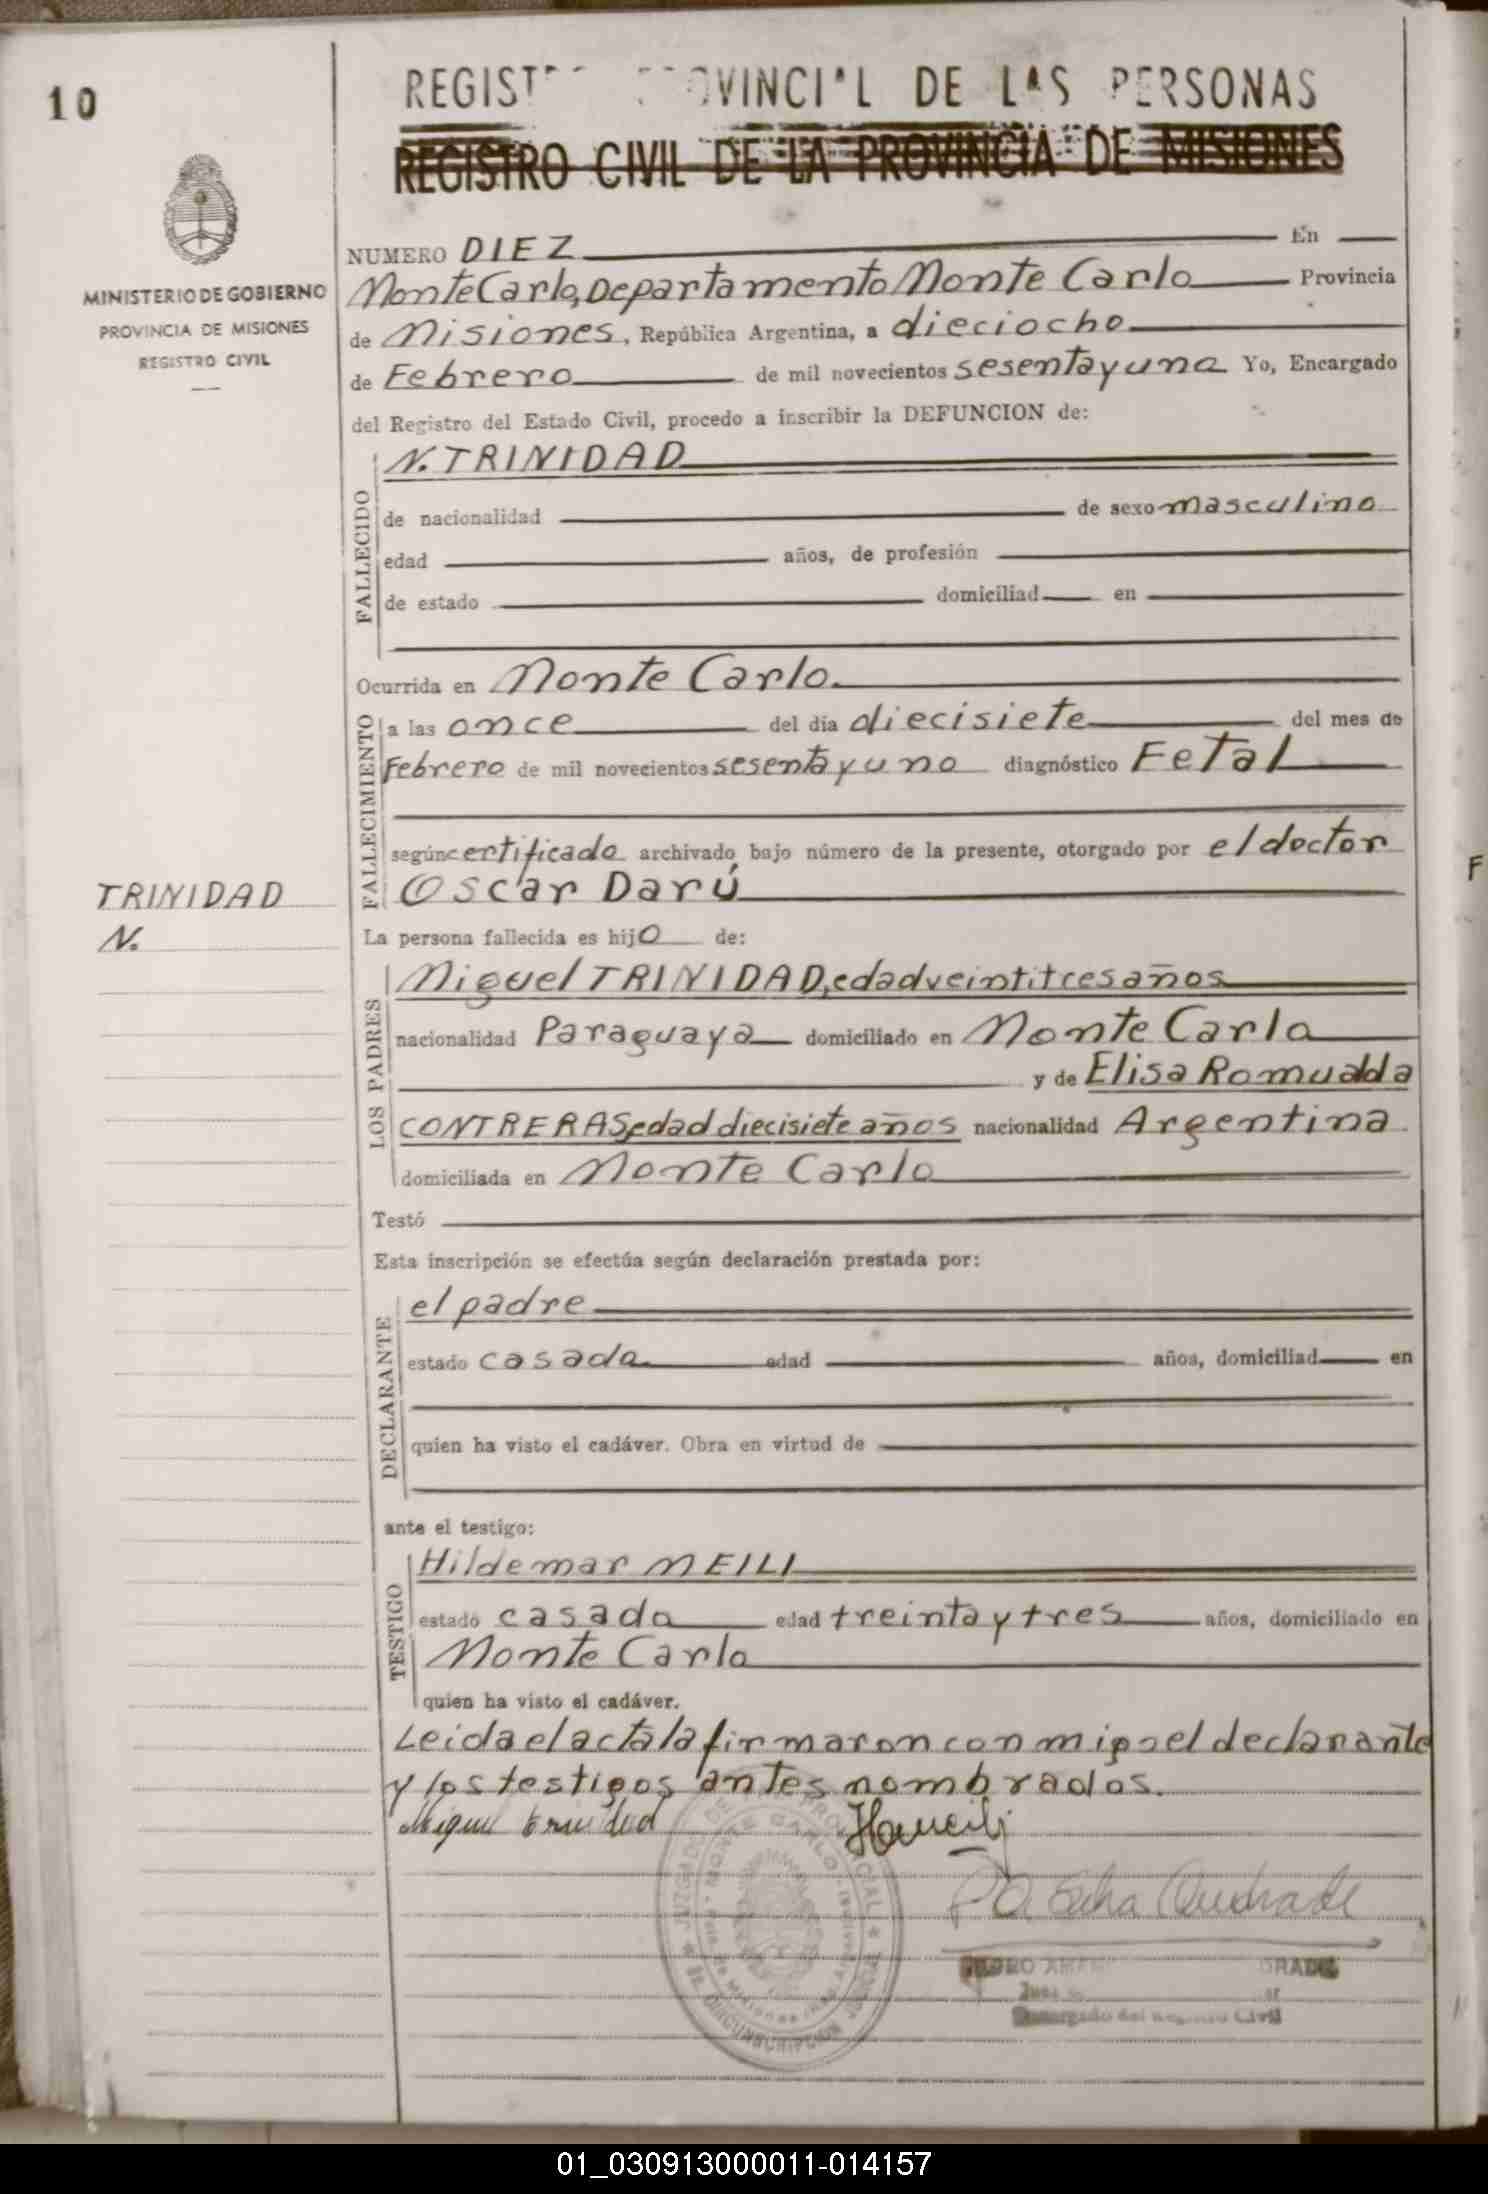 10
REGIST PROVINCIAL DE LAS PERSONAS
REGISTRO CIVIL DE LA PROVINCIA DE MISIONES
MINISTERIO DE GOBIERNO
PROVINCIA DE MISIONES
REGISTRO CIVIL
NUMERO DIEZ En
Monte Carlo, Departamento Monte Carlo Provincia
de Misiones, República Argentina, a dieciocho
de Febrero de mil novecientos sesenta y uno Yo, Encargado
del Registro del Estado Civil, procedo a inscribir la DEFUNCION de:
FALLECIDO
N. TRINIDAD
de nacionalidad de sexo masculino
edad años, de profesión
de estado domiciliad en
Ocurrida en Monte Carlo
FALLECIMIENTO
a las once del día diecisiete del mes de
Febrero de mil novecientos sesenta y uno diagnóstico Fetal
según certificado archivado bajo número de la presente, otorgado por el doctor
Oscar Darú
TRINIDAD
N.
La persona fallecida es hijo de:
LOS PADRES
Miguel TRINIDAD, edad veintitres años
nacionalidad Paraguaya domiciliado en Monte Carlo
y de Elisa Romualda
CONTRERAS, edad diecisiete años nacionalidad Argentina
domiciliada en Monte Carlo
Testó
Esta inscripción se efectúa según declaración prestada por:
DECLARANTE
el padre
estado casado edad años, domiciliad en
quien ha visto el cadáver. Obra en virtud de
ante el testigo:
TESTIGO
Hildemar MEILI
estado casado edad treinta y tres años, domiciliado en
Monte Carlo
quien ha visto el cadáver.
Leida el acta la firmaron conmigo el declarante
y los testigos antes nombrados.
Miguel trinidad
HMeili
Encargado del Registro Civil
F
01_030913000011-014157